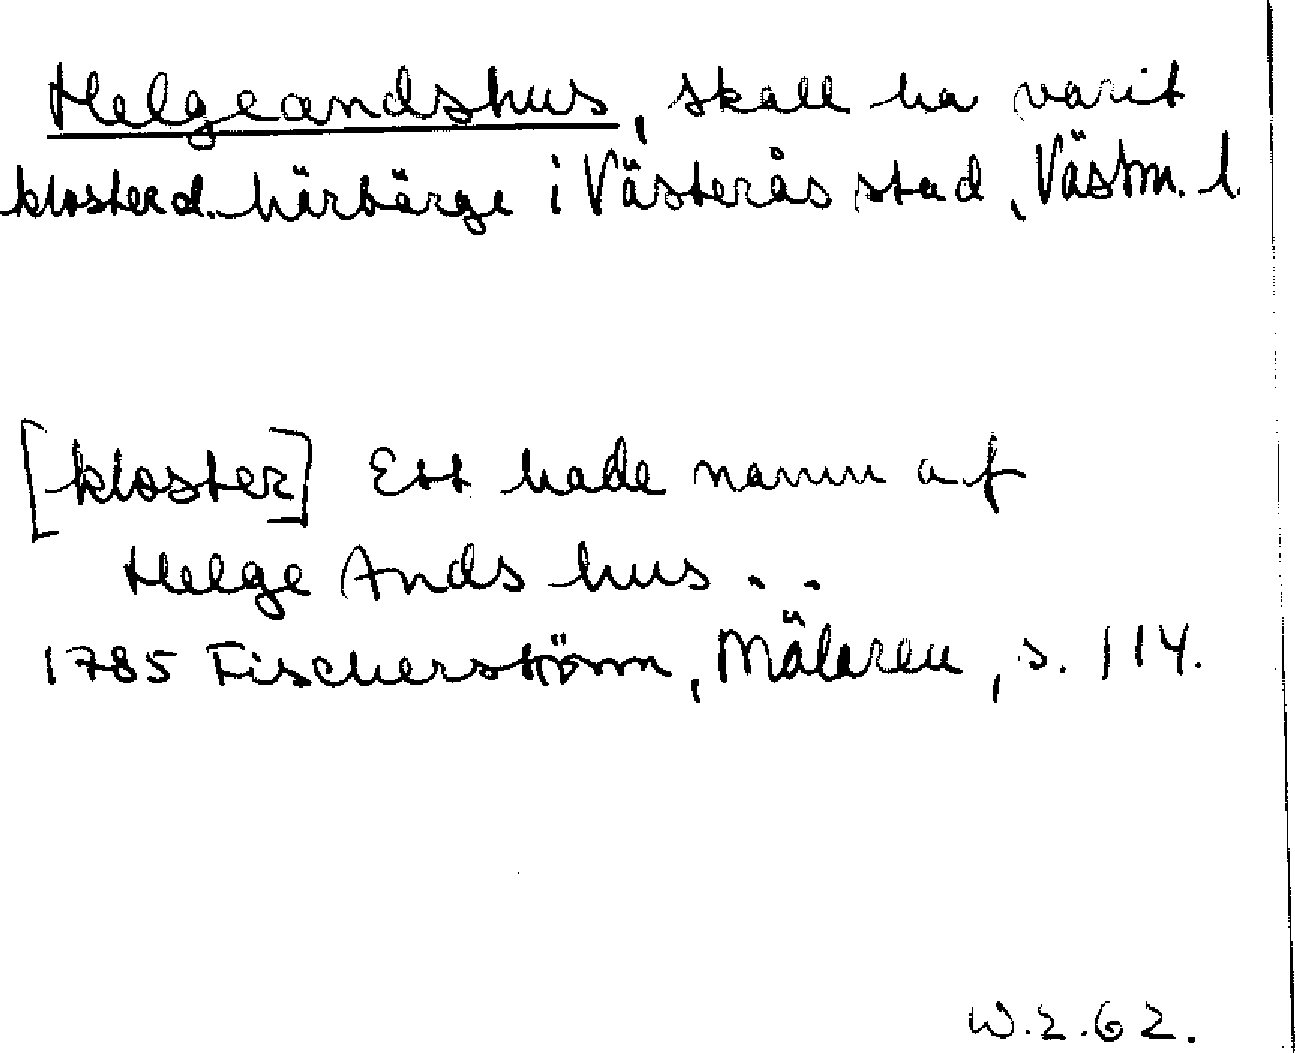 Helgeandshus, skall ha varit
kloster d. härbärge i Västerås stad, Västm. l.
[kloster] Ett hade namn af
Helge Ands hus . .
1785 Fischerström, Mälaren, s. 114.
W.Z.62.